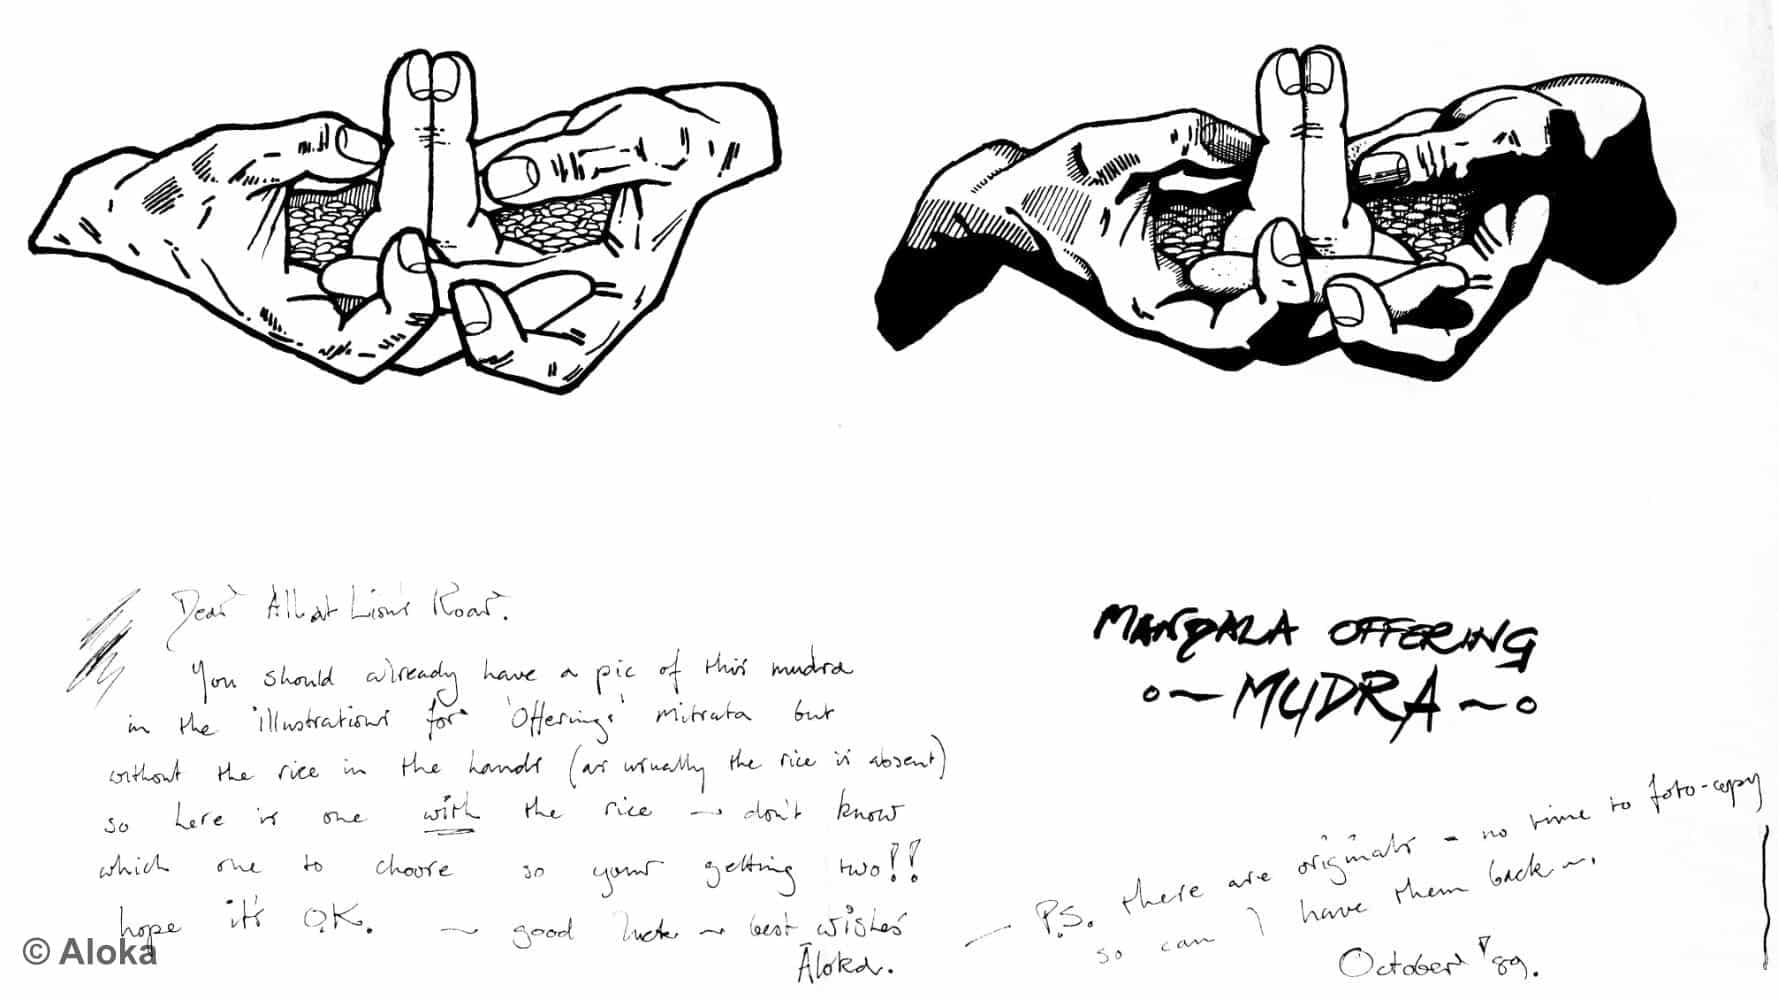 Dear All at Lion's Roar.
You should already have a pic of this mudra
in the illustrations for 'Offerings' mitrata but
without the rice in the hands (as usually the rice is absent)
so here is one with the rice — don't know
which one to choose so your getting two!!
hope it's O.K. ~ good luck ~ best wishes
Āloka.
MANḌALA OFFERING
MUDRA
— P.S. these are originals - no time to foto-copy
so can I have them back ~.
October '89.
© Aloka